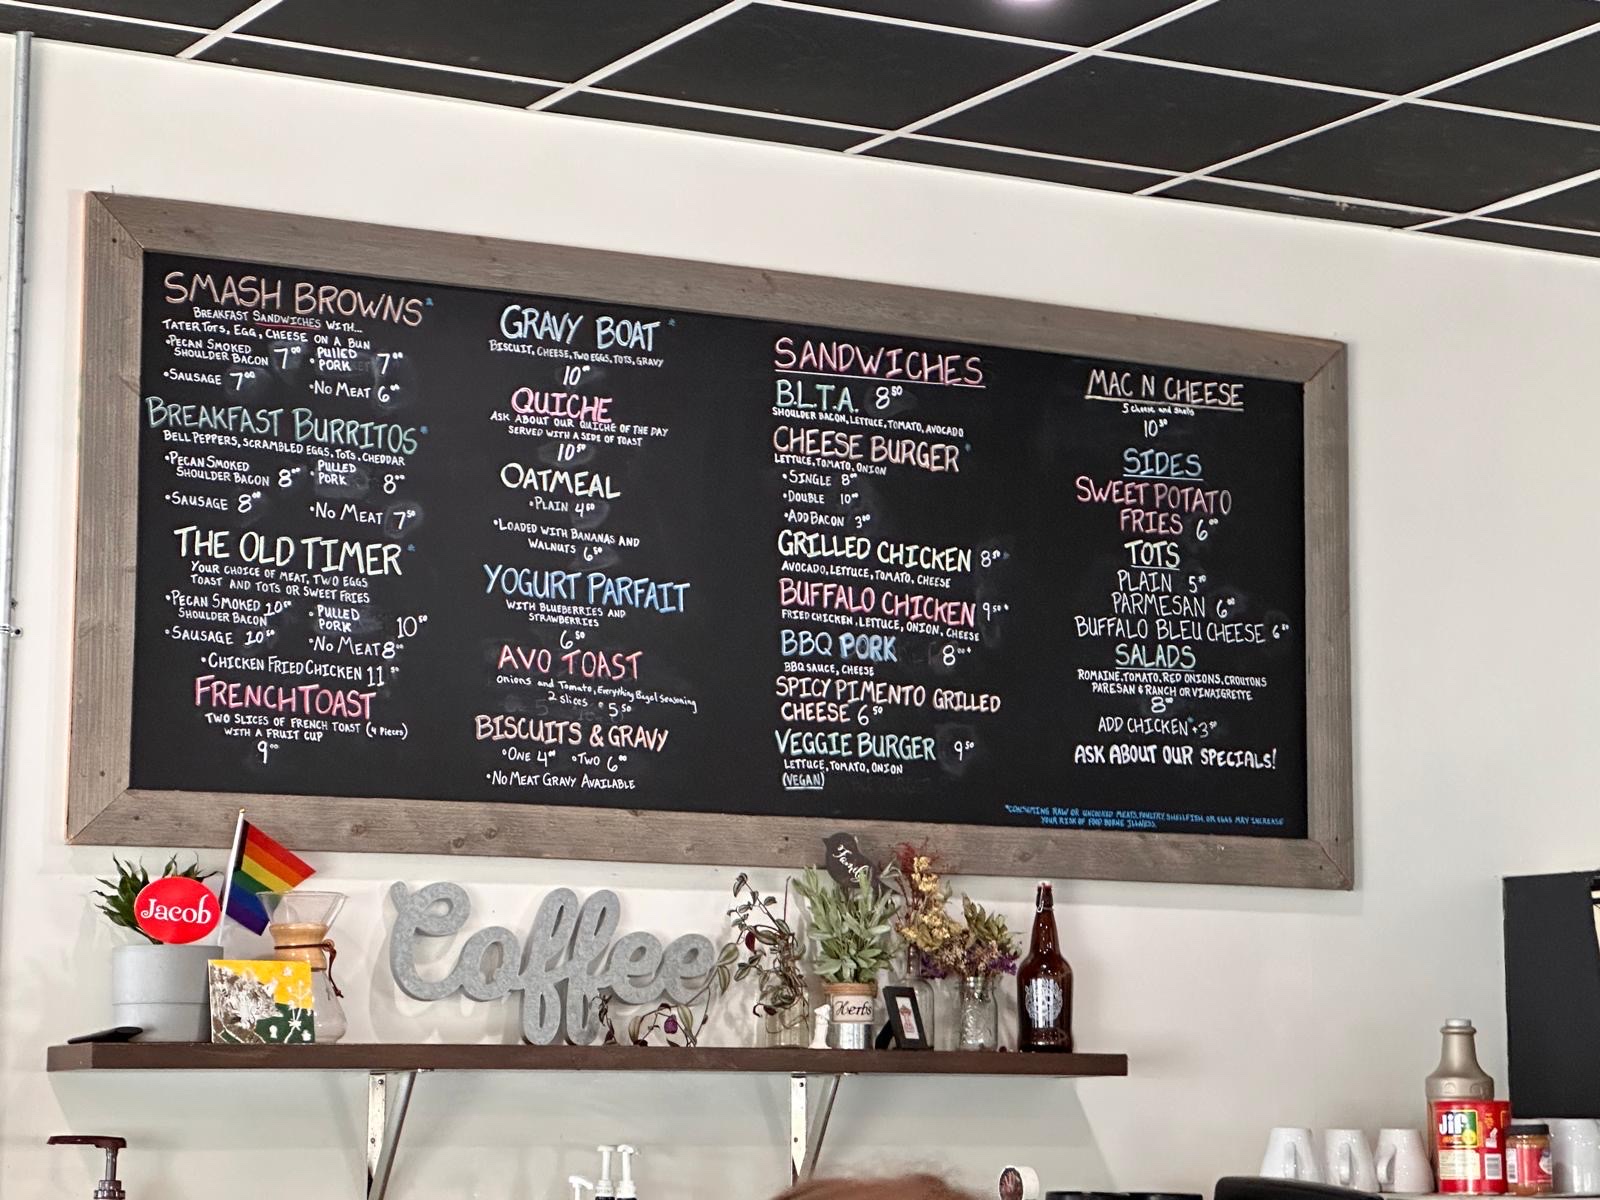 SMASH BROWNS*
BREAKFAST SANDWICHES WITH...
TATER TOTS, EGG, CHEESE ON A BUN
•PECAN SMOKED SHOULDER BACON 7⁰⁰
•PULLED PORK 7⁰⁰
•SAUSAGE 7⁰⁰
•NO MEAT 6⁰⁰
BREAKFAST BURRITOS*
BELL PEPPERS, SCRAMBLED EGGS, TOTS, CHEDDAR
•PECAN SMOKED SHOULDER BACON 8⁰⁰
•PULLED PORK 8⁰⁰
•SAUSAGE 8⁰⁰
•NO MEAT 7⁵⁰
THE OLD TIMER*
YOUR CHOICE OF MEAT, TWO EGGS
TOAST AND TOTS OR SWEET FRIES
•PECAN SMOKED SHOULDER BACON 10⁵⁰
•PULLED PORK 10⁵⁰
•SAUSAGE 10⁵⁰
•NO MEAT 8⁵⁰
•CHICKEN FRIED CHICKEN 11⁵⁰
FRENCH TOAST
TWO SLICES OF FRENCH TOAST (4 Pieces)
WITH A FRUIT CUP
9⁰⁰
GRAVY BOAT*
BISCUIT, CHEESE, TWO EGGS, TOTS, GRAVY
10
QUICHE
ASK ABOUT OUR QUICHE OF THE DAY
SERVED WITH A SIDE OF TOAST
10⁵⁰
OATMEAL
•PLAIN 4⁵⁰
•LOADED WITH BANANAS AND
WALNUTS 6⁵⁰
YOGURT PARFAIT
WITH BLUEBERRIES AND
STRAWBERRIES
6⁵⁰
AVO TOAST
Onions and Tomato, Everything Bagel Seasoning
2 slices • 5⁵⁰
BISCUITS & GRAVY
•ONE 4⁰⁰ •TWO 6⁰⁰
•NO MEAT GRAVY AVAILABLE
SANDWICHES
B.L.T.A. 8⁵⁰
SHOULDER BACON, LETTUCE, TOMATO, AVOCADO
CHEESE BURGER*
LETTUCE, TOMATO, ONION
•SINGLE 8⁰⁰
•DOUBLE 10⁰⁰
•ADD BACON 3⁰⁰
GRILLED CHICKEN 8⁵⁰*
AVOCADO, LETTUCE, TOMATO, CHEESE
BUFFALO CHICKEN 9⁵⁰*
FRIED CHICKEN, LETTUCE, ONION, CHEESE
BBQ PORK 8⁰⁰*
BBQ SAUCE, CHEESE
SPICY PIMENTO GRILLED
CHEESE 6⁵⁰
VEGGIE BURGER 9⁵⁰
LETTUCE, TOMATO, ONION
(VEGAN)
MAC N CHEESE
5 cheese and shells
10⁵⁰
SIDES
SWEET POTATO
FRIES 6⁰⁰
TOTS
PLAIN 5⁵⁰
PARMESAN 6⁰⁰
BUFFALO BLEU CHEESE 6⁵⁰
SALADS
ROMAINE, TOMATO, RED ONIONS, CROUTONS
PARESAN & RANCH OR VINAIGRETTE
8⁰⁰
ADD CHICKEN* +3⁵⁰
ASK ABOUT OUR SPECIALS!
*CONSUMING RAW OR UNCOOKED MEATS, POULTRY, SHELLFISH, OR EGGS MAY INCREASE
YOUR RISK OF FOOD BORNE ILLNESS.
Jacob
Coffee
Family
Herbs
Jif